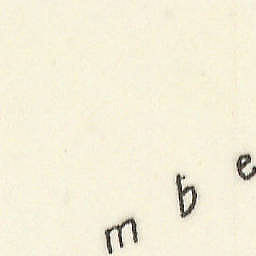 m b e